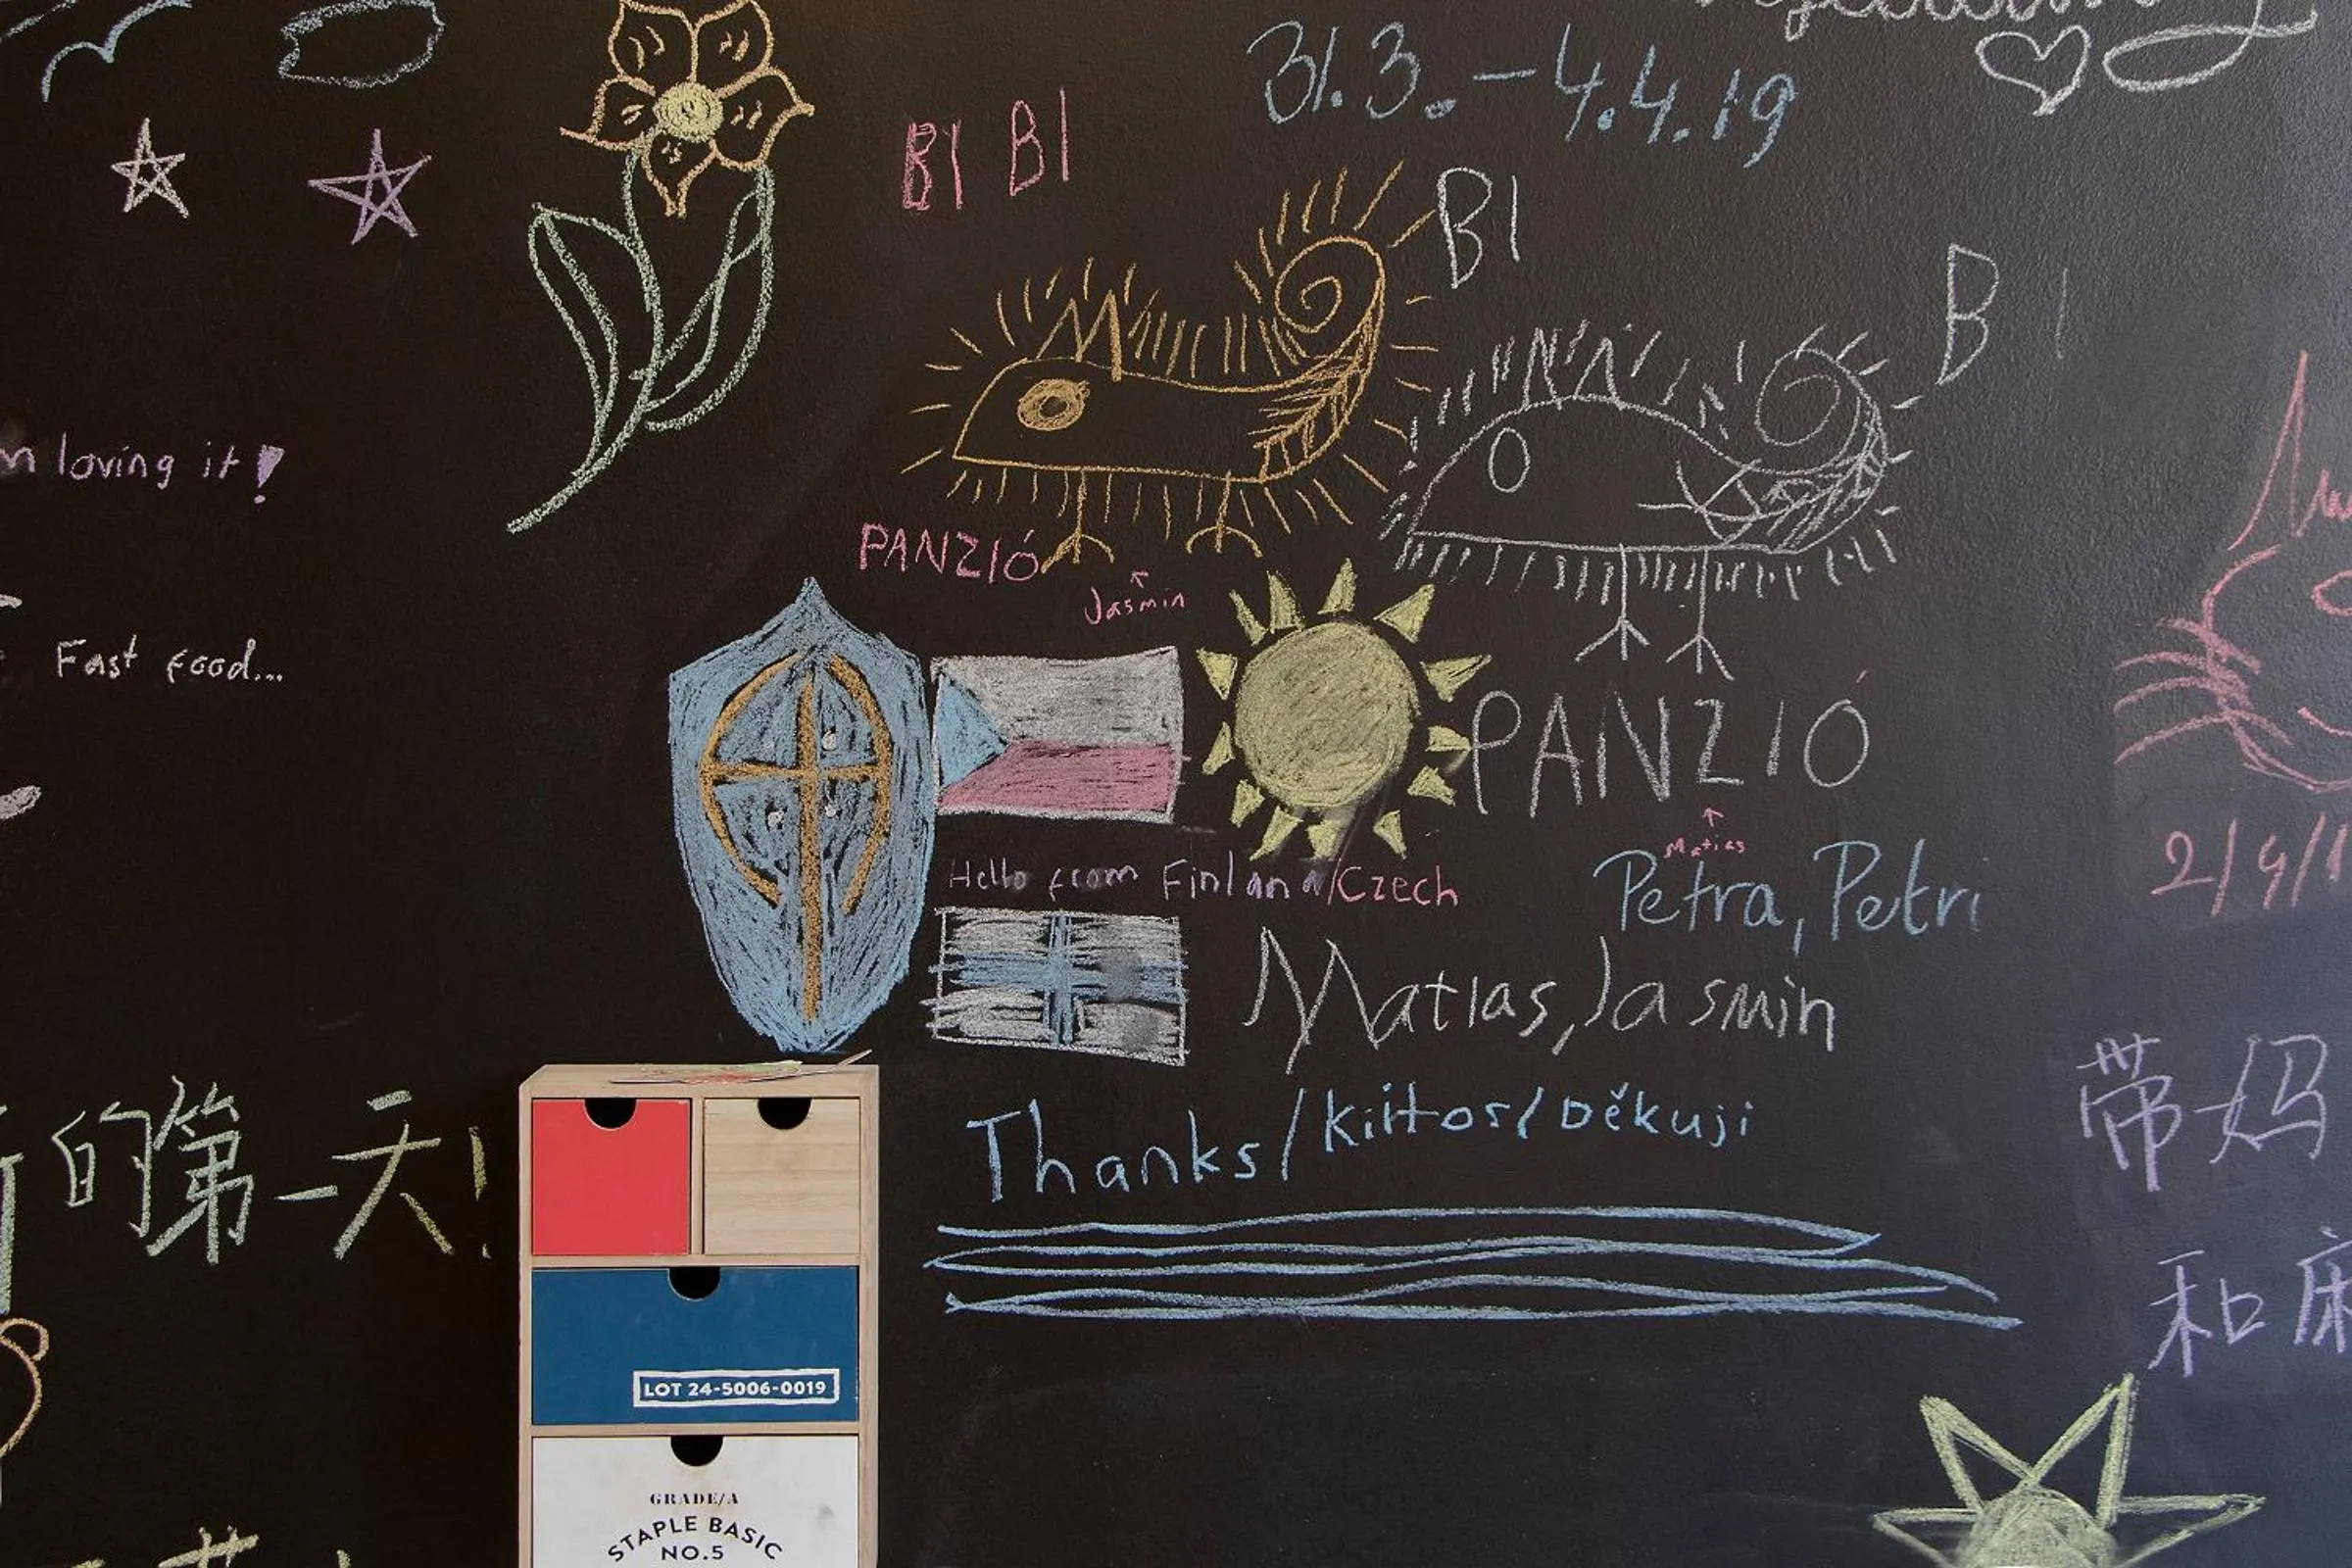 31.3. - 4.4.19
BI BI
BI
BI
loving it!
PANZIÓ
Jasmin
Fast food...
PANZIÓ
Matias
Hello from Finland/Czech
Petra, Petri
Matias, Jasmin
2/9/1
带妈
的第一天!
Thanks/Kiitos/Děkuji
和
LOT 24-5006-0019
GRADE/A
STAPLE BASIC
NO.5